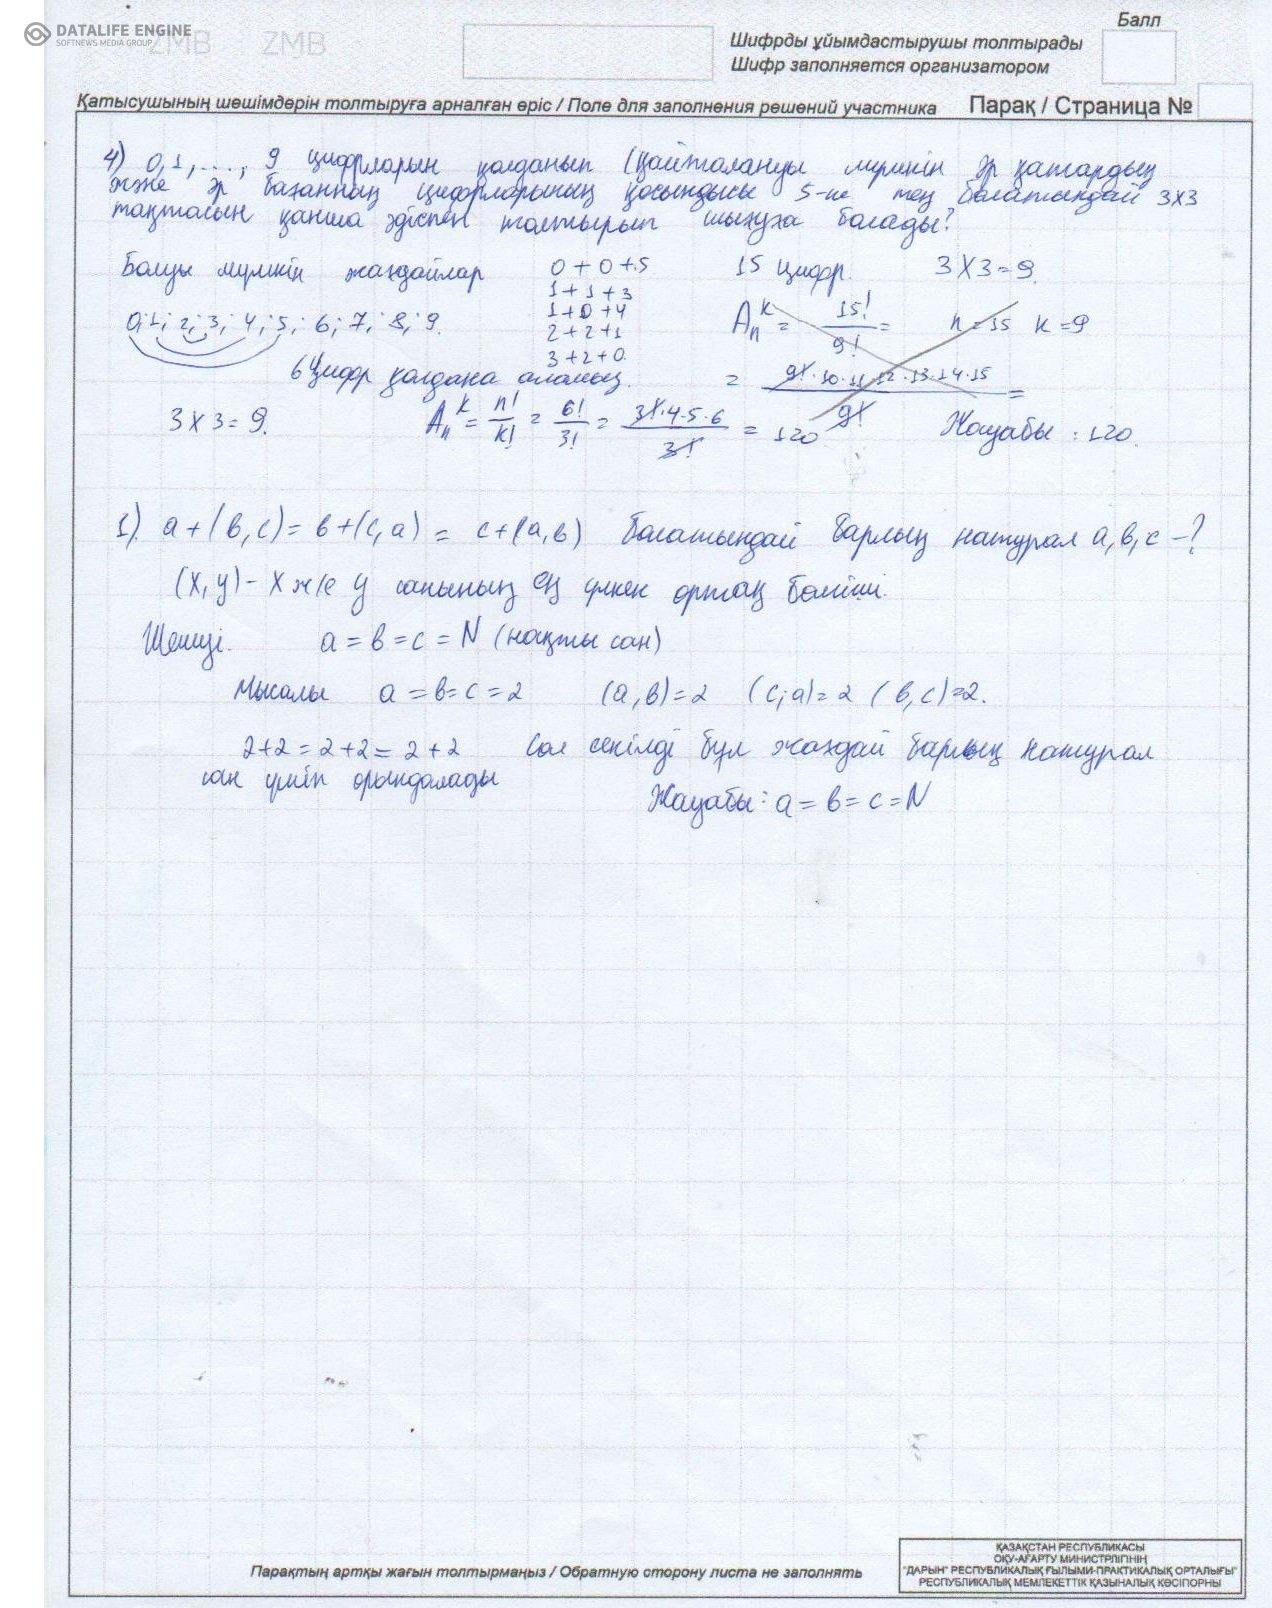 DATALIFE ENGINE
SOFTNEWS MEDIA GROUP
ZMB ZMB
Балл
Шифрды ұйымдастырушы толтырады
Шифр заполняется организатором
Қатысушының шешімдерін толтыруға арналған өріс / Поле для заполнения решений участника Парақ / Страница №
4) 0,1,...., 9 цифрларын қолданып (қайталануы мүмкін әр қатардың
және әр бағанның цифрларының қосындысы 5-ке тең болатындай 3x3
тақтасын қанша әдіспен толтырып шығуға болады?
Болуы мүмкін жағдайлар 0+0+5 15 цифр. 3X3=9.
1+1+3
0;1; 2; 3; 4; 5; 6; 7; 8; 9. 1+0+4 Aₙᵏ = 15!/9! = n=15 k=9
2+2+1
3+2+0.
6 Цифр қолдана аламыз. = 9!·10·11·12·13·14·15/9! =
3X3=9. Aₙᵏ = n!/k! = 6!/3! = 3!·4·5·6/3! = 120 Жауабы: 120.
1) a+(в,c)=в+(c,a)= c+(a,в) болатындай барлық натурал a,в,c -?
(x,y)- x ж/е y санының ең үлкен ортақ бөлгіші.
Шешуі. a=в=c=N (нақты сан)
Мысалы a=в=c=2 (a,в)=2 (c;a)=2 (в,c)=2.
2+2=2+2=2+2 Сол секілді бұл жағдай барлық натурал
сан үшін орындалады
Жауабы: a=в=c=N
Парақтың артқы жағын толтырмаңыз / Обратную сторону листа не заполнять
ҚАЗАҚСТАН РЕСПУБЛИКАСЫ
ОҚУ-АҒАРТУ МИНИСТРЛІГІНІҢ
"ДАРЫН" РЕСПУБЛИКАЛЫҚ ҒЫЛЫМИ-ПРАКТИКАЛЫҚ ОРТАЛЫҒЫ"
РЕСПУБЛИКАЛЫҚ МЕМЛЕКЕТТІК ҚАЗЫНАЛЫҚ КӘСІПОРНЫ